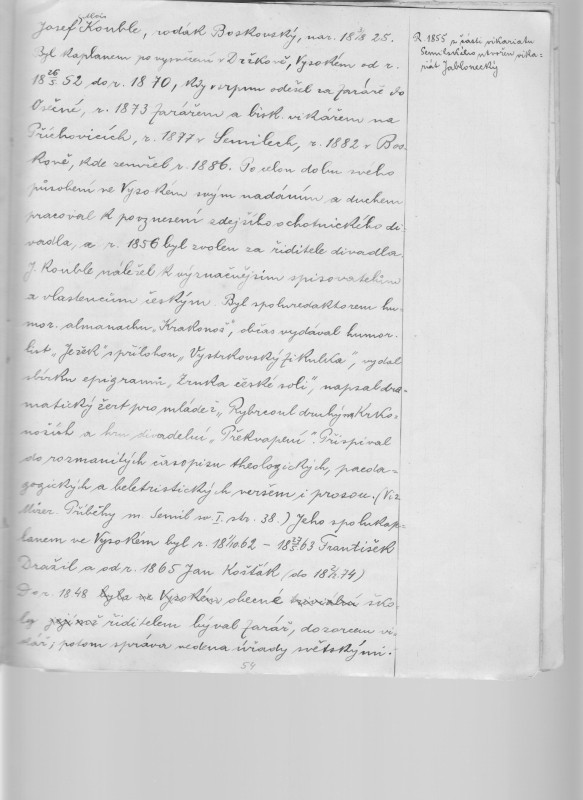 Josef Alois Kouble, rodák Boskovský, nar. 18 1/8 25.
Byl kaplanem po vysvěcení v Držkově, Vysokém od r.
18 26/5 52 do r. 1870, kdy v srpnu odešel za faráře do
Osečné, r. 1873 farářem a bisk. vikářem na
Příchovicích, r. 1877 v Semilech, r. 1882 v Bos-
kově, kde zemřel r. 1886. Po celou dobu svého
působení ve Vysokém svým nadáním a duchem
pracoval k povznesení zdejšího ochotnického di-
vadla, a r. 1856 byl zvolen za řiditele divadla.
J. Kouble náležel k význačnějším spisovatelům
a vlastencům českým. Byl spoluredaktorem hu-
mor. almanachu „Krakonoš", občas vydával humor.
list „Ježek" s přílohou „Vystrkovský fikulka", vydal
sbírku epigramů „Zrnka české soli", napsal dra-
matický žert pro mládež „Rybrcoul druhým Krko-
noších a hru divadelní „Překvapení". Přispíval
do rozmanitých časopisů theologických, paeda-
gogických a beletristických veršem i prosou. (Viz
Mizer. Příběhy m. Semil sv. I. str. 38.) Jeho spolukap-
lanem ve Vysokém byl r. 18 1/10 62 – 18 23/5 63 František
Dražil a od r. 1865 Jan Košťák (do 18 2/4 74)
Do r. 1848 byla ve Vysokém obecné triviální ško-
ly jejímž řiditelem býval farář, dozorcem vi-
kář; potom správa vedena úřady světskými.
54
R. 1855 z části vikariatu
Semilského utvořen vika-
riát Jablonecký